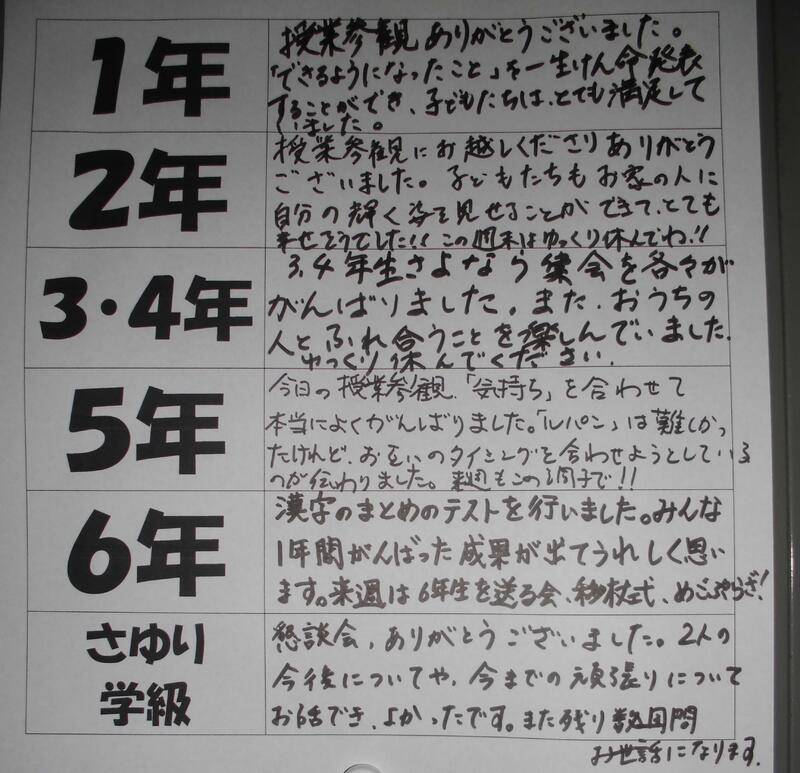 1年
授業参観ありがとうございました。
「できるようになったこと」を一生けん命発表
することができ、子どもたちは、とても満足して
いました。
2年
授業参観にお越しくださりありがとう
ございました。子どもたちもお家の人に
自分の輝く姿を見せることができて、とても
幸せそうでした!!この週末はゆっくり休んでね!!
3・4年
3.4年生さよなら集会を各々が
がんばりました。また、おうちの
人とふれ合うことを楽しんでいました。
ゆっくり休んでください。
5年
今日の授業参観、「気持ち」を合わせて
本当によくがんばりました。「ルパン」は難しかっ
たけれど、お互いのタイミングを合わせようとしている
のが伝わりました。来週もこの調子で!!
6年
漢字のまとめのテストを行いました。みんな
1年間がんばった成果が出てうれしく思い
ます。来週は6年生を送る会、移杖式、
さゆり
学級
懇談会、ありがとうございました。2人の
今後についてや、今までの頑張りについて
お話でき、よかったです。また残り数日間
お世話になります。